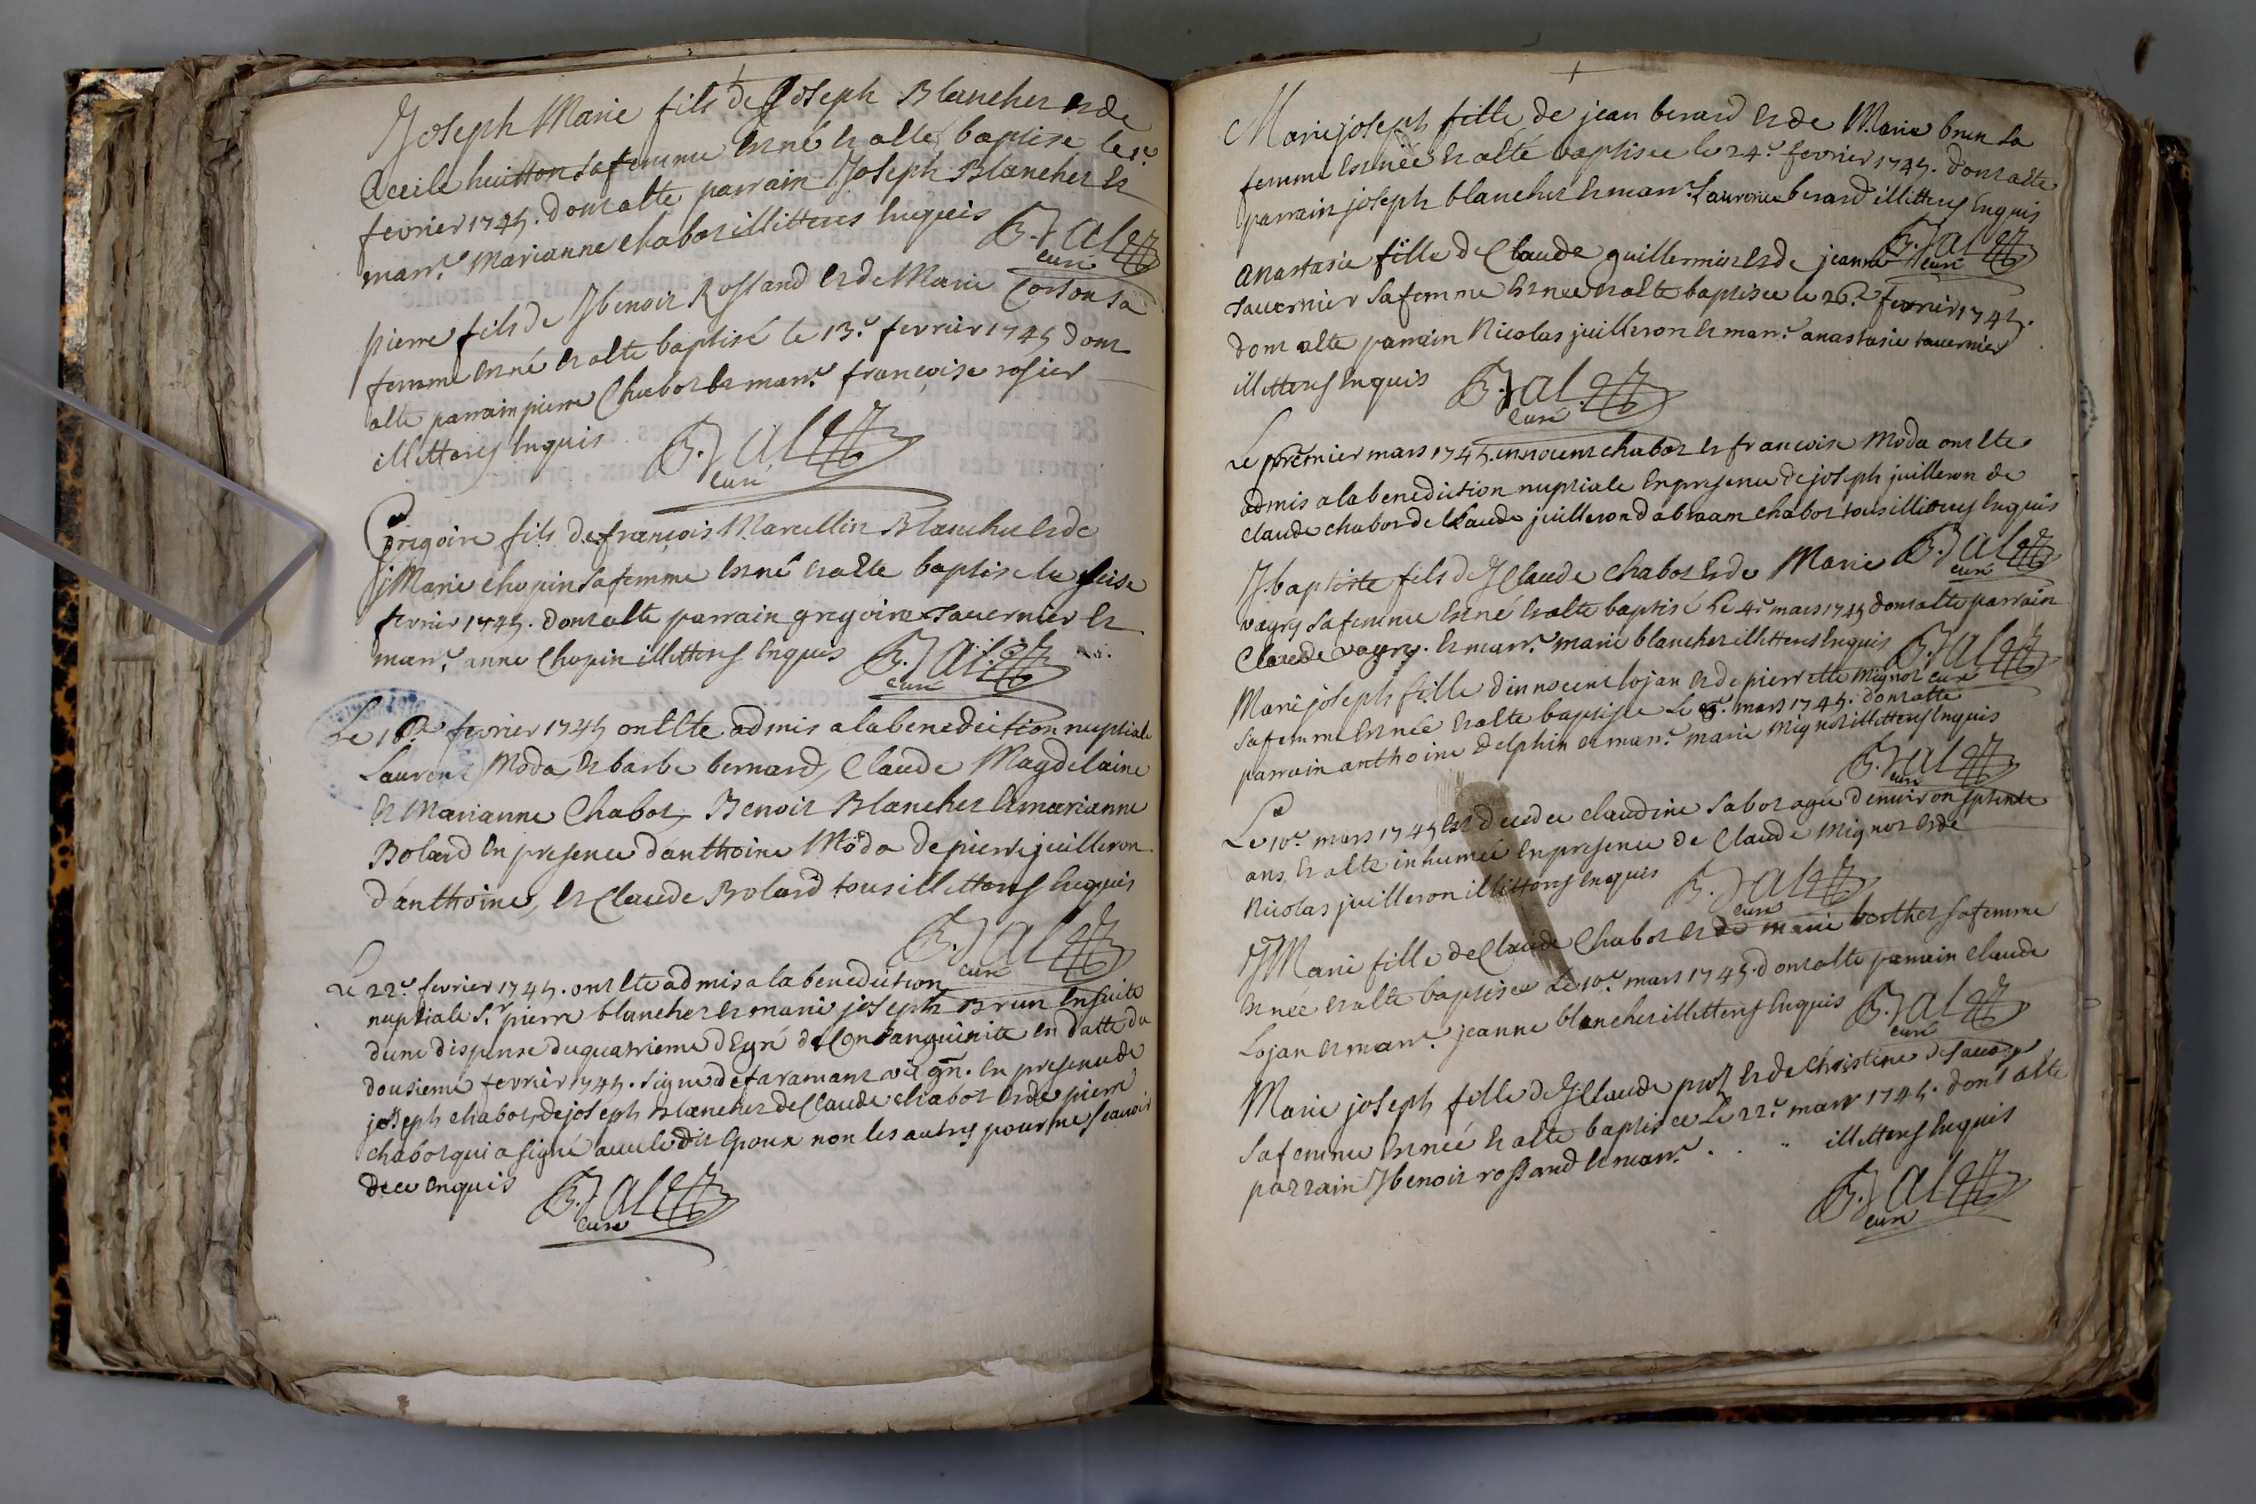 Joseph Marie fils de Joseph Blanchet et de
Cecile huitton sa femme est né et a été baptise le 1.r
fevrier 1745. dont a été parrain Joseph Blanchet et
marr.e Marianne Chabot illitterés enquis
B. Jalez
curé
pierre fils de J benoit Rossand et de Marie Cotton sa
femme est né et a été baptisé le 13.e fevrier 1745 dont
a été parrain pierre Chabot et marr.e françoise rosier
illitterés enquis
B. Jalez
curé
Gregoire fils de françois Marcellin Blanchet et de
J Marie chopin sa femme est né et a été baptise le seise
fevrier 1745. dont a été parrain gregoire tavernier et
marr.e anne Chopin illitterés enquis B. Jalez
curé
Le 18.e fevrier 1745 ont été admis a la benediction nuptiale
Laurent Moda et barbe bernard, Claude Magdelaine
et Marianne Chabot, Benoit Blanchet et marianne
Bolard en presence d'anthoine Moda de pierre juilleron
d'anthoine, et Claude Bolard tous illitterés enquis
B. Jalez
curé
Le 22.e fevrier 1745. ont été admis a la benediction
nuptiale S.r pierre blanchet et marie joseph Brun ensuite
d'une dispense du quatrieme degré de consanguinite en datte du
dousieme fevrier 1745. signe de faramant vic gn. en presence de
joseph chabot, de joseph blanchet de Claude chabot et de pierre
chabot qui a signé avec le dit epoux non les autres pour ne scavoir
de ce enquis B. Jalez
curé
Marie joseph fille de jean berard et de Marie brun sa
femme est née et a été baptisee le 24.e fevrier 1745. dont a été
parrain joseph blanchet et marr.e Laurence berard illitterés enquis
B. Jalez
curé
anastasie fille de Claude guillermin et de jeanne
tavernier sa femme est née et a été baptisee le 26.e fevrier 1745.
dont a été parrain Nicolas juilleron et marr.e anastasie tavernier
illitterés enquis B. Jalez
curé
Le premier mars 1745. innocent chabot et francoise Moda ont été
admis a la benediction nuptiale en presence de joseph juilleron de
claude chabot de Claude juilleron d'abraam chabot tous illitterés enquis
B. Jalez
curé
J. baptiste fils de J Claude chabot et de Marie
vagry sa femme est né et a été baptisé Le 4.e mars 1745 dont a été parrain
Claude vagry. et marr.e marie blanchet illitterés enquis B. Jalez
curé
Marie joseph fille d'innocent lojan et de pierrette mignot
sa femme est née et a été baptisee Le 8.e mars 1745. dont a été
parrain anthoine delphin et marr.e marie mignot illitterés enquis
B. Jalez
curé
Le 10.e mars 1745 est decedee claudine sabot agée d'environ septente
ans et a été inhumée en presence de Claude Mignot et de
Nicolas juilleron illitterés enquis B. Jalez
curé
J Marie fille de Claude Chabot et de marie berthet sa femme
est née et a été baptisee Le 10.e mars 1745. dont a été parrain claude
Lojan et marr.e jeanne blanchet illitterés enquis B. Jalez
curé
Marie joseph fille de J Claude prost et de christine
sa femme est née et a été baptisee Le 22.e mars 1745. dont a été
parrain J benoit rossand et marr.e . . . illitterés enquis
B. Jalez
curé